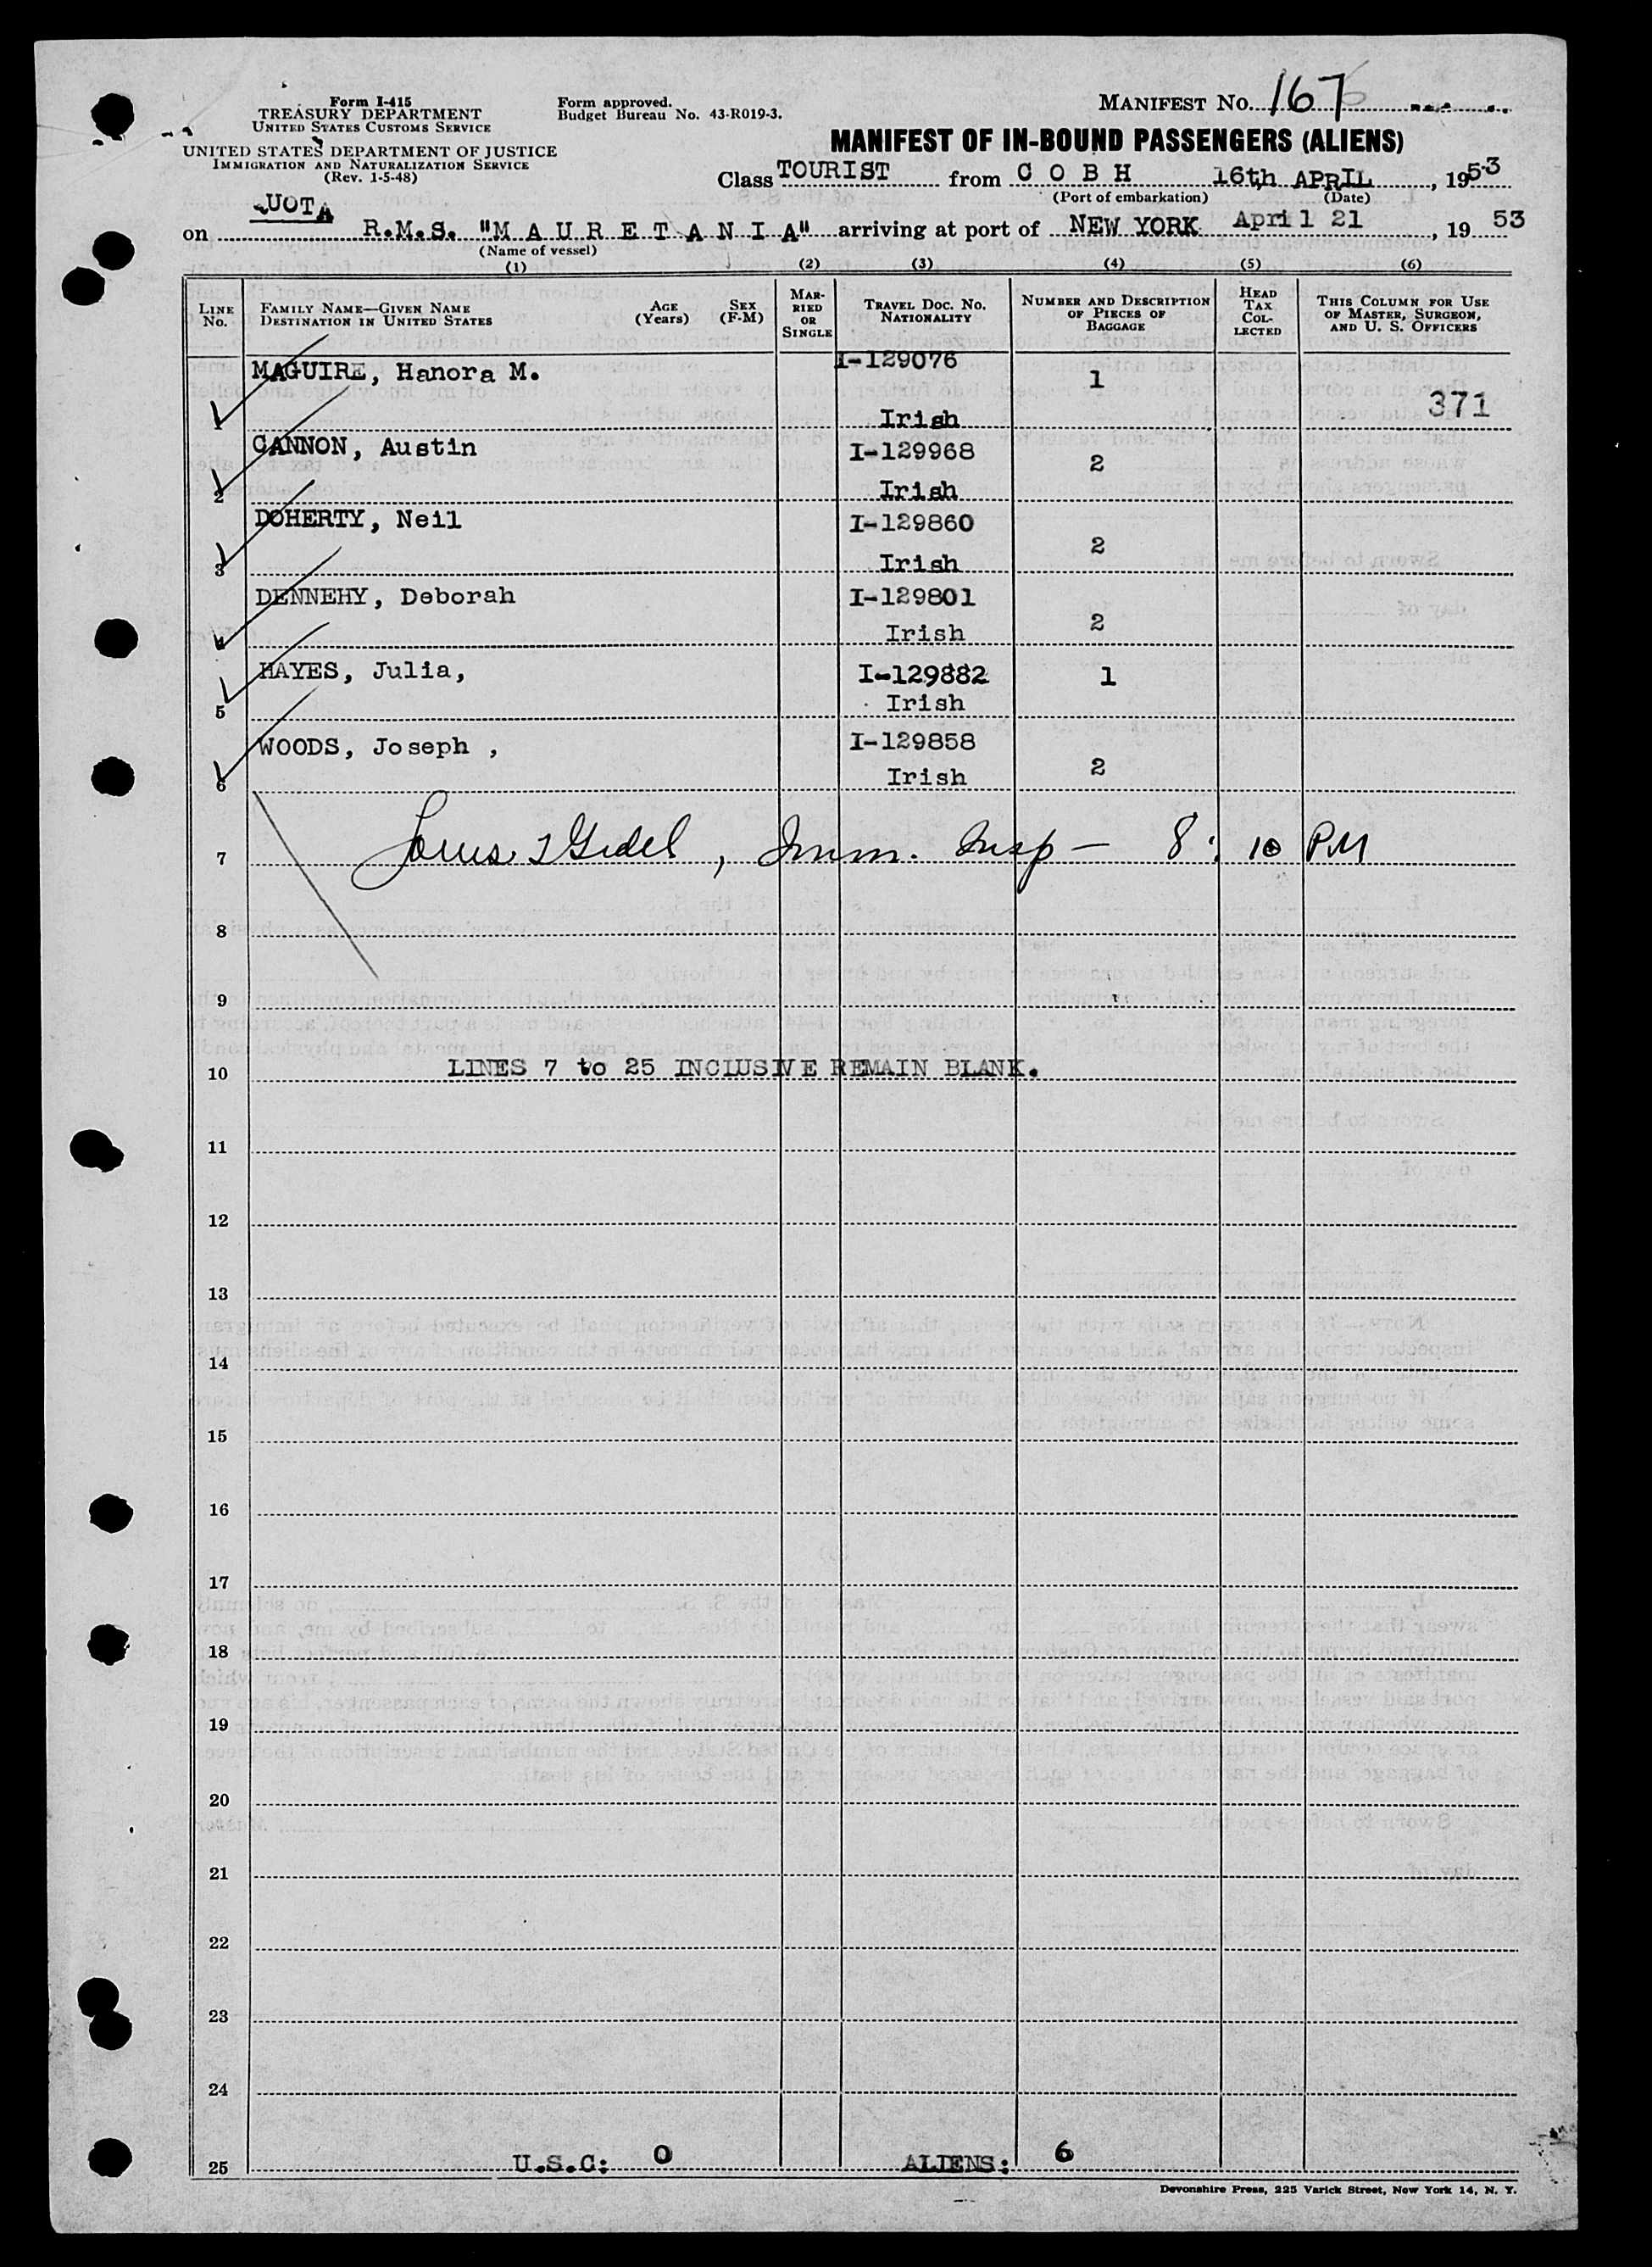 Form I-415
TREASURY DEPARTMENT
UNITED STATES CUSTOMS SERVICE
UNITED STATES DEPARTMENT OF JUSTICE
IMMIGRATION AND NATURALIZATION SERVICE
(Rev. 1-5-48)
Form approved.
Budget Bureau No. 43-R019-3.
MANIFEST NO. 167
MANIFEST OF IN-BOUND PASSENGERS (ALIENS)
Class TOURIST from C O B H 16th APRIL, 1953
(Port of embarkation) (Date)
UOTA
on R.M.S. "M A U R E T A N I A" arriving at port of NEW YORK April 21, 19 53
(Name of vessel)
(1) (2) (3) (4) (5) (6)
LINE NO. FAMILY NAME—GIVEN NAME DESTINATION IN UNITED STATES AGE (Years) SEX (F-M) MARRIED OR SINGLE TRAVEL DOC. NO. NATIONALITY NUMBER AND DESCRIPTION OF PIECES OF BAGGAGE HEAD TAX COLLECTED THIS COLUMN FOR USE OF MASTER, SURGEON, AND U. S. OFFICERS
MAGUIRE, Hanora M. I-129076 1
1 Irish 371
CANNON, Austin I-129968 2
2 Irish
DOHERTY, Neil I-129860 2
3 Irish
DENNEHY, Deborah I-129801 2
4 Irish
HAYES, Julia, I-129882 1
5 Irish
WOODS, Joseph , I-129858 2
6 Irish
7 , Imm. Insp — 8: 10 PM
8
9
10 LINES 7 to 25 INCLUSIVE REMAIN BLANK.
11
12
13
14
15
16
17
18
19
20
21
22
23
24
25 U.S.C: 0 ALIENS: 6
Devonshire Press, 225 Varick Street, New York 14, N. Y.